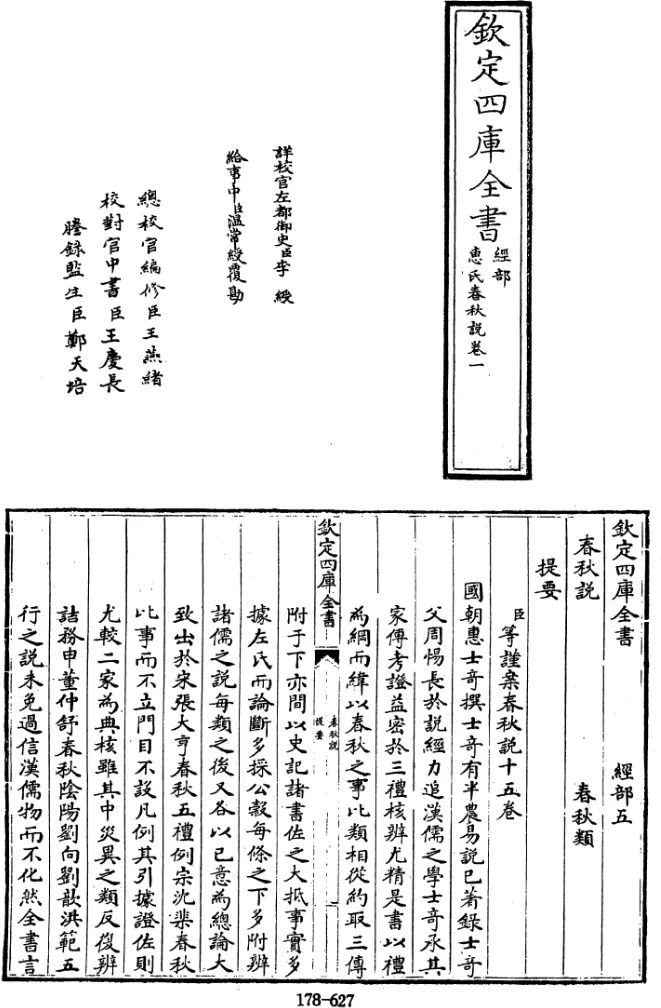 欽定四庫全書
經部
惠氏春秋説卷一
詳校官左都御史臣李綬
給事中臣温常綬覆勘
總校官編修臣王燕緒
校對官中書臣王慶長
謄錄監生臣鄭天培
欽定四庫全書 經部五
春秋説 春秋類
提要
臣等謹案春秋説十五卷
國朝惠士奇撰士奇有半農易説已著錄士奇
父周惕長於説經力追漢儒之學士奇承其
家傳考證益密於三禮核辨尤精是書以禮
為綱而緯以春秋之事比類相從約取三傳
欽定四庫全書
春秋説
提要
一
附于下亦間以史記諸書佐之大抵事實多
據左氏而論斷多採公穀每條之下多附辨
諸儒之説每類之後又各以已意為總論大
致出於宋張大亨春秋五禮例宗沈棐春秋
比事而不立門目不設凡例其引據證佐則
尤較二家為典核雖其中災異之類反復辨
詰務申董仲舒春秋陰陽劉向劉歆洪範五
行之説未免過信漢儒物而不化然全書言
178-627